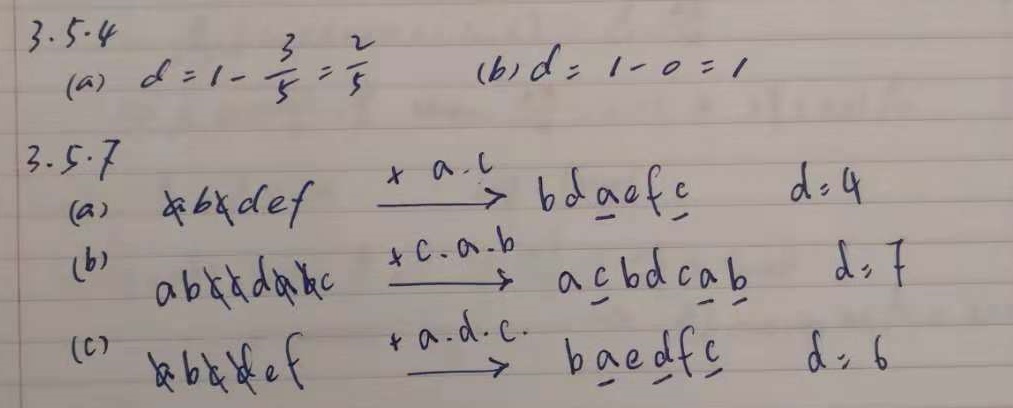 3.5.4
(a) d = 1 - 3/5 = 2/5 (b) d = 1 - 0 = 1
3.5.7
(a) abcdef + a.c → bdaefc d = 4
(b) abdabc + c.a.b → acbdcab d = 7
(c) ef + a.d.c. → baedfc d = 6